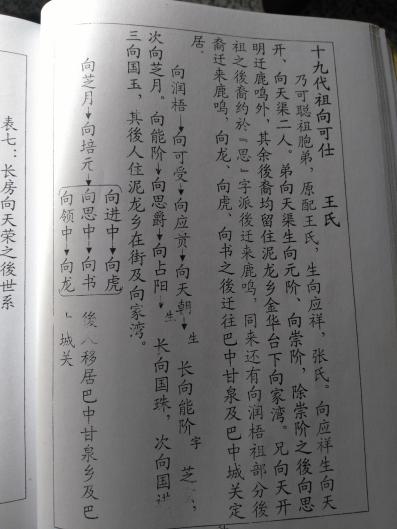 十九代祖向可仕　王氏
乃可聪祖胞弟，原配王氏，生向应祥，张氏。向应祥生向天
开、向天渠二人。弟向天渠生向元阶、向崇阶，除崇阶之後向思
明迁鹿鸣外，其余後裔均留住泥龙乡金华台下向家湾。兄向天开
祖之後裔约於『思』字派後迁来鹿鸣，同来还有向润梧祖部分後
裔迁来鹿鸣，向龙、向虎、向书之後迁往巴中甘泉及巴中城关定
居。
向润梧→向可受→向应贡→向天朝→生 长向能阶 字 芝
次向芝月。向能阶→向思爵→向占阳→生 长向国珠，次向国
三向国玉，其後人住泥龙乡在街及向家湾。
向进中→向虎
向芝月→向培元→向思中→向书 後 移居巴中甘泉乡及巴
向领中→向龙 城关
表七：长房向天荣之後世系